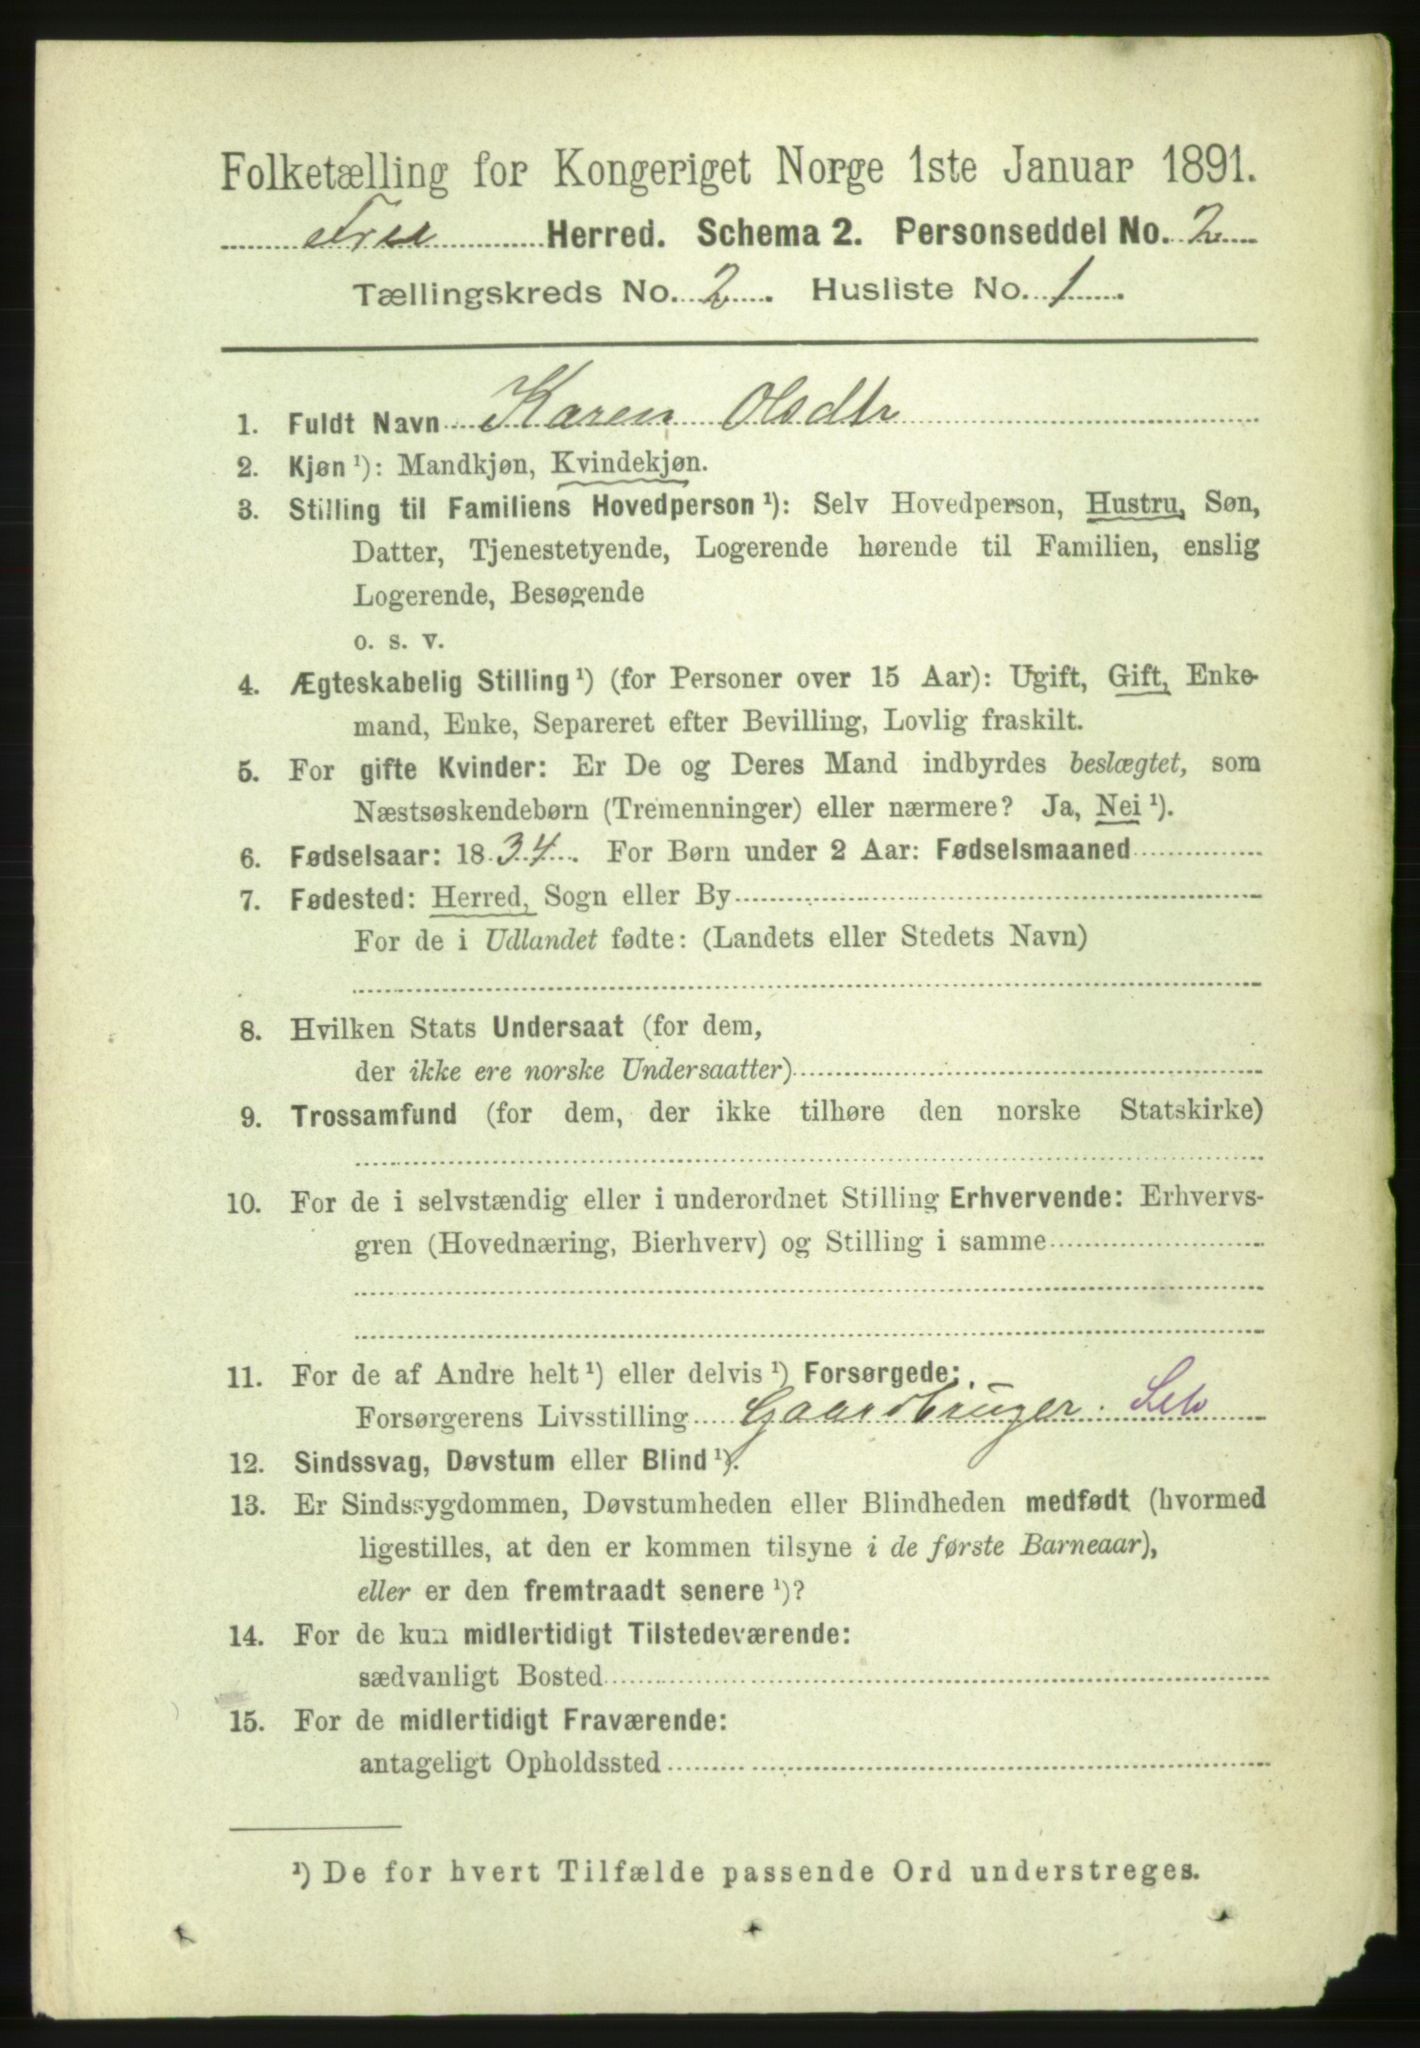 Folketælling for Kongeriget Norge 1ste Januar 1891.
Herred. Schema 2. Personseddel No. 2
Tællingskreds No. 2. Husliste No. 1.
1. Fuldt Navn Karen Olsdtr
2. Kjøn ¹): Mandkjøn, Kvindekjøn.
3. Stilling til Familiens Hovedperson ¹): Selv Hovedperson, Hustru, Søn,
Datter, Tjenestetyende, Logerende hørende til Familien, enslig
Logerende, Besøgende
o. s. v.
4. Ægteskabelig Stilling ¹) (for Personer over 15 Aar): Ugift, Gift, Enke-
mand, Enke, Separeret efter Bevilling, Lovlig fraskilt.
5. For gifte Kvinder: Er De og Deres Mand indbyrdes beslægtet, som
Næstsøskendebørn (Tremenninger) eller nærmere? Ja, Nei ¹).
6. Fødselsaar: 1834. For Børn under 2 Aar: Fødselsmaaned
7. Fødested: Herred, Sogn eller By
For de i Udlandet fødte: (Landets eller Stedets Navn)
8. Hvilken Stats Undersaat (for dem,
der ikke ere norske Undersaatter)
9. Trossamfund (for dem, der ikke tilhøre den norske Statskirke)
10. For de i selvstændig eller i underordnet Stilling Erhvervende: Erhvervs-
gren (Hovednæring, Bierhverv) og Stilling i samme
11. For de af Andre helt ¹) eller delvis ¹) Forsørgede:
Forsørgerens Livsstilling Gaardbruger. Selv
12. Sindssvag, Døvstum eller Blind ¹).
13. Er Sindssygdommen, Døvstumheden eller Blindheden medfødt (hvormed
ligestilles, at den er kommen tilsyne i de første Barneaar),
eller er den fremtraadt senere ¹)?
14. For de kun midlertidigt Tilstedeværende:
sædvanligt Bosted
15. For de midlertidigt Fraværende:
antageligt Opholdssted
¹) De for hvert Tilfælde passende Ord understreges.